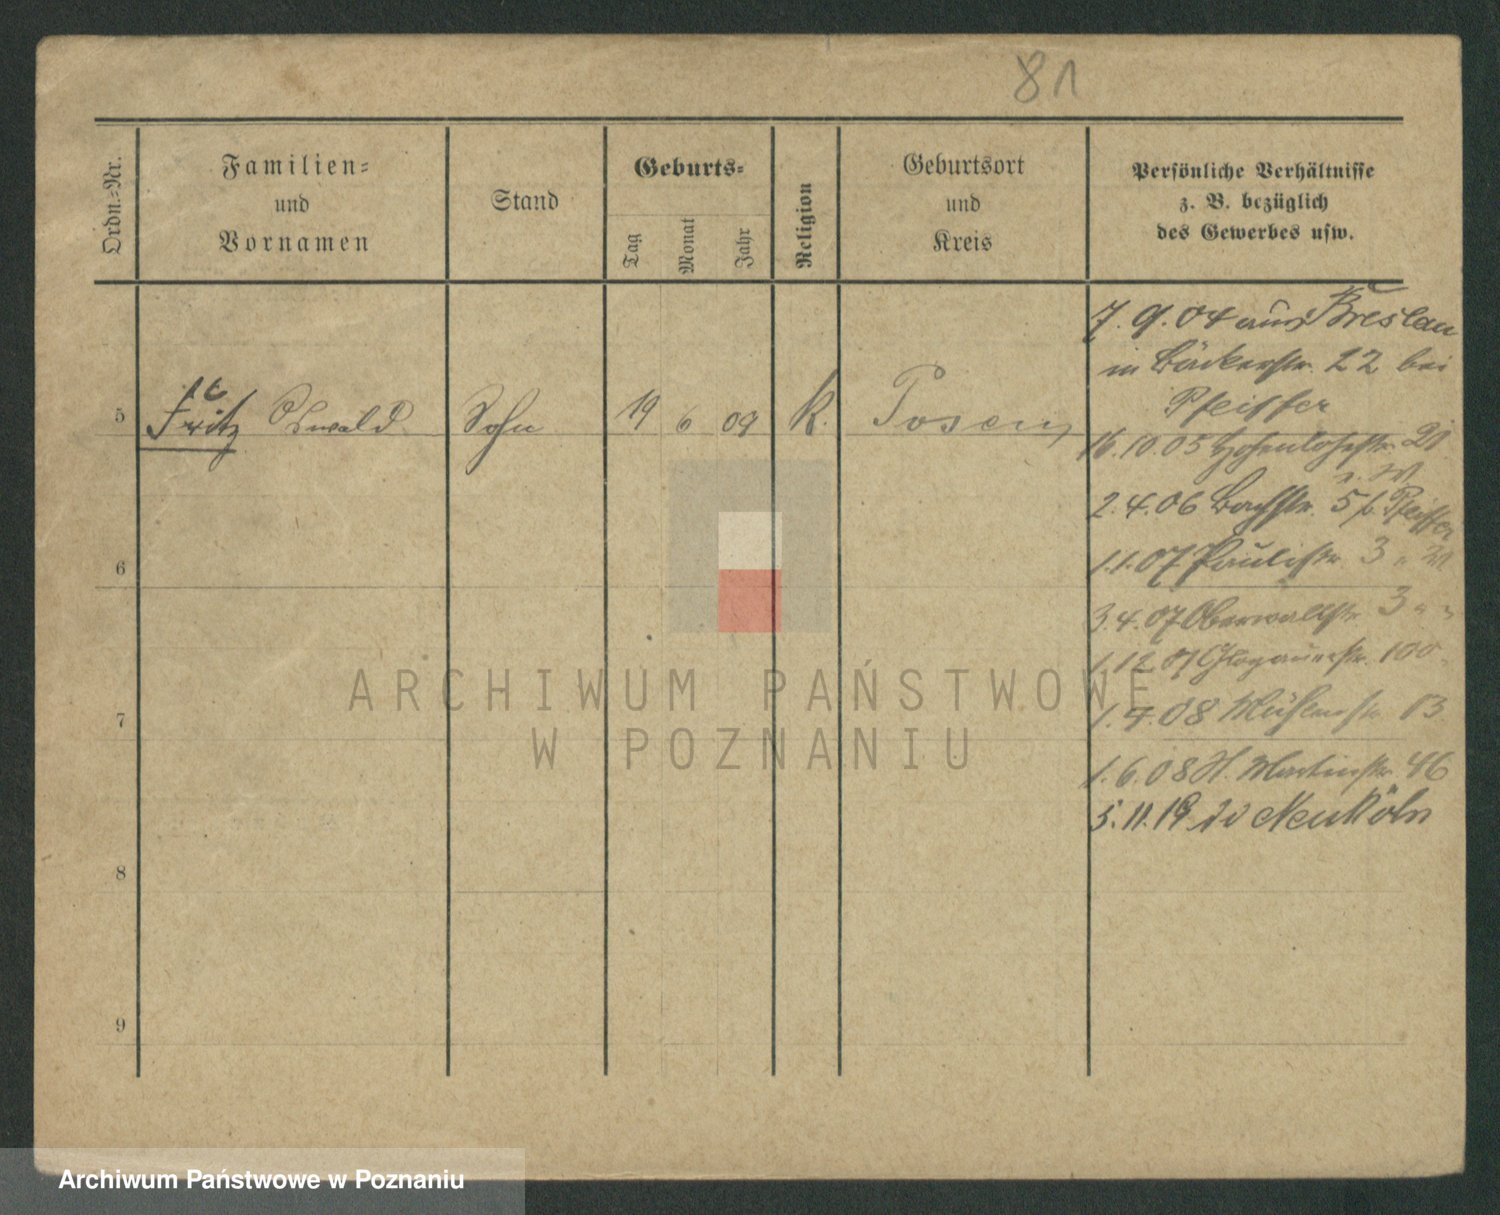 81
Ordn.-Nr.
Familien-
und
Vornamen
Stand
Geburts-
Tag
Monat
Jahr
Religion
Geburtsort
und
Kreis
Persönliche Verhältnisse
z. B. bezüglich
des Gewerbes usw.
7.9.04 aus Breslau
in Bäckerstr. 22 bei
Pfeiffer
5 Fritz Oswald Sohn 19 6 09 K. Posen
16.10.05 Hohenlohestr. 21
2.4.06 Bachstr. 5 b. Pfeiffer
1.1.07 Paulistr. 3
6
3.4.07 Oberwallstr. 3 " "
1.12.07 Glogauerstr. 100
1.4.08 Mühlenstr. 13
7
1.6.08 St. Martinstr. 46
5.11.19 Neukölln
8
9
ARCHIWUM PAŃSTWOWE
W POZNANIU
Archiwum Państwowe w Poznaniu